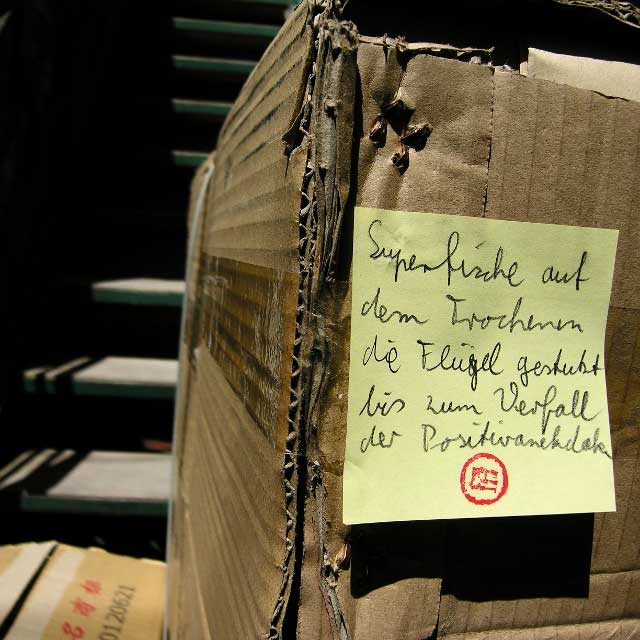 Superfische auf
dem Trockenen
die Flügel gestutzt
bis zum Verfall
der Positivanekdoten
0120821